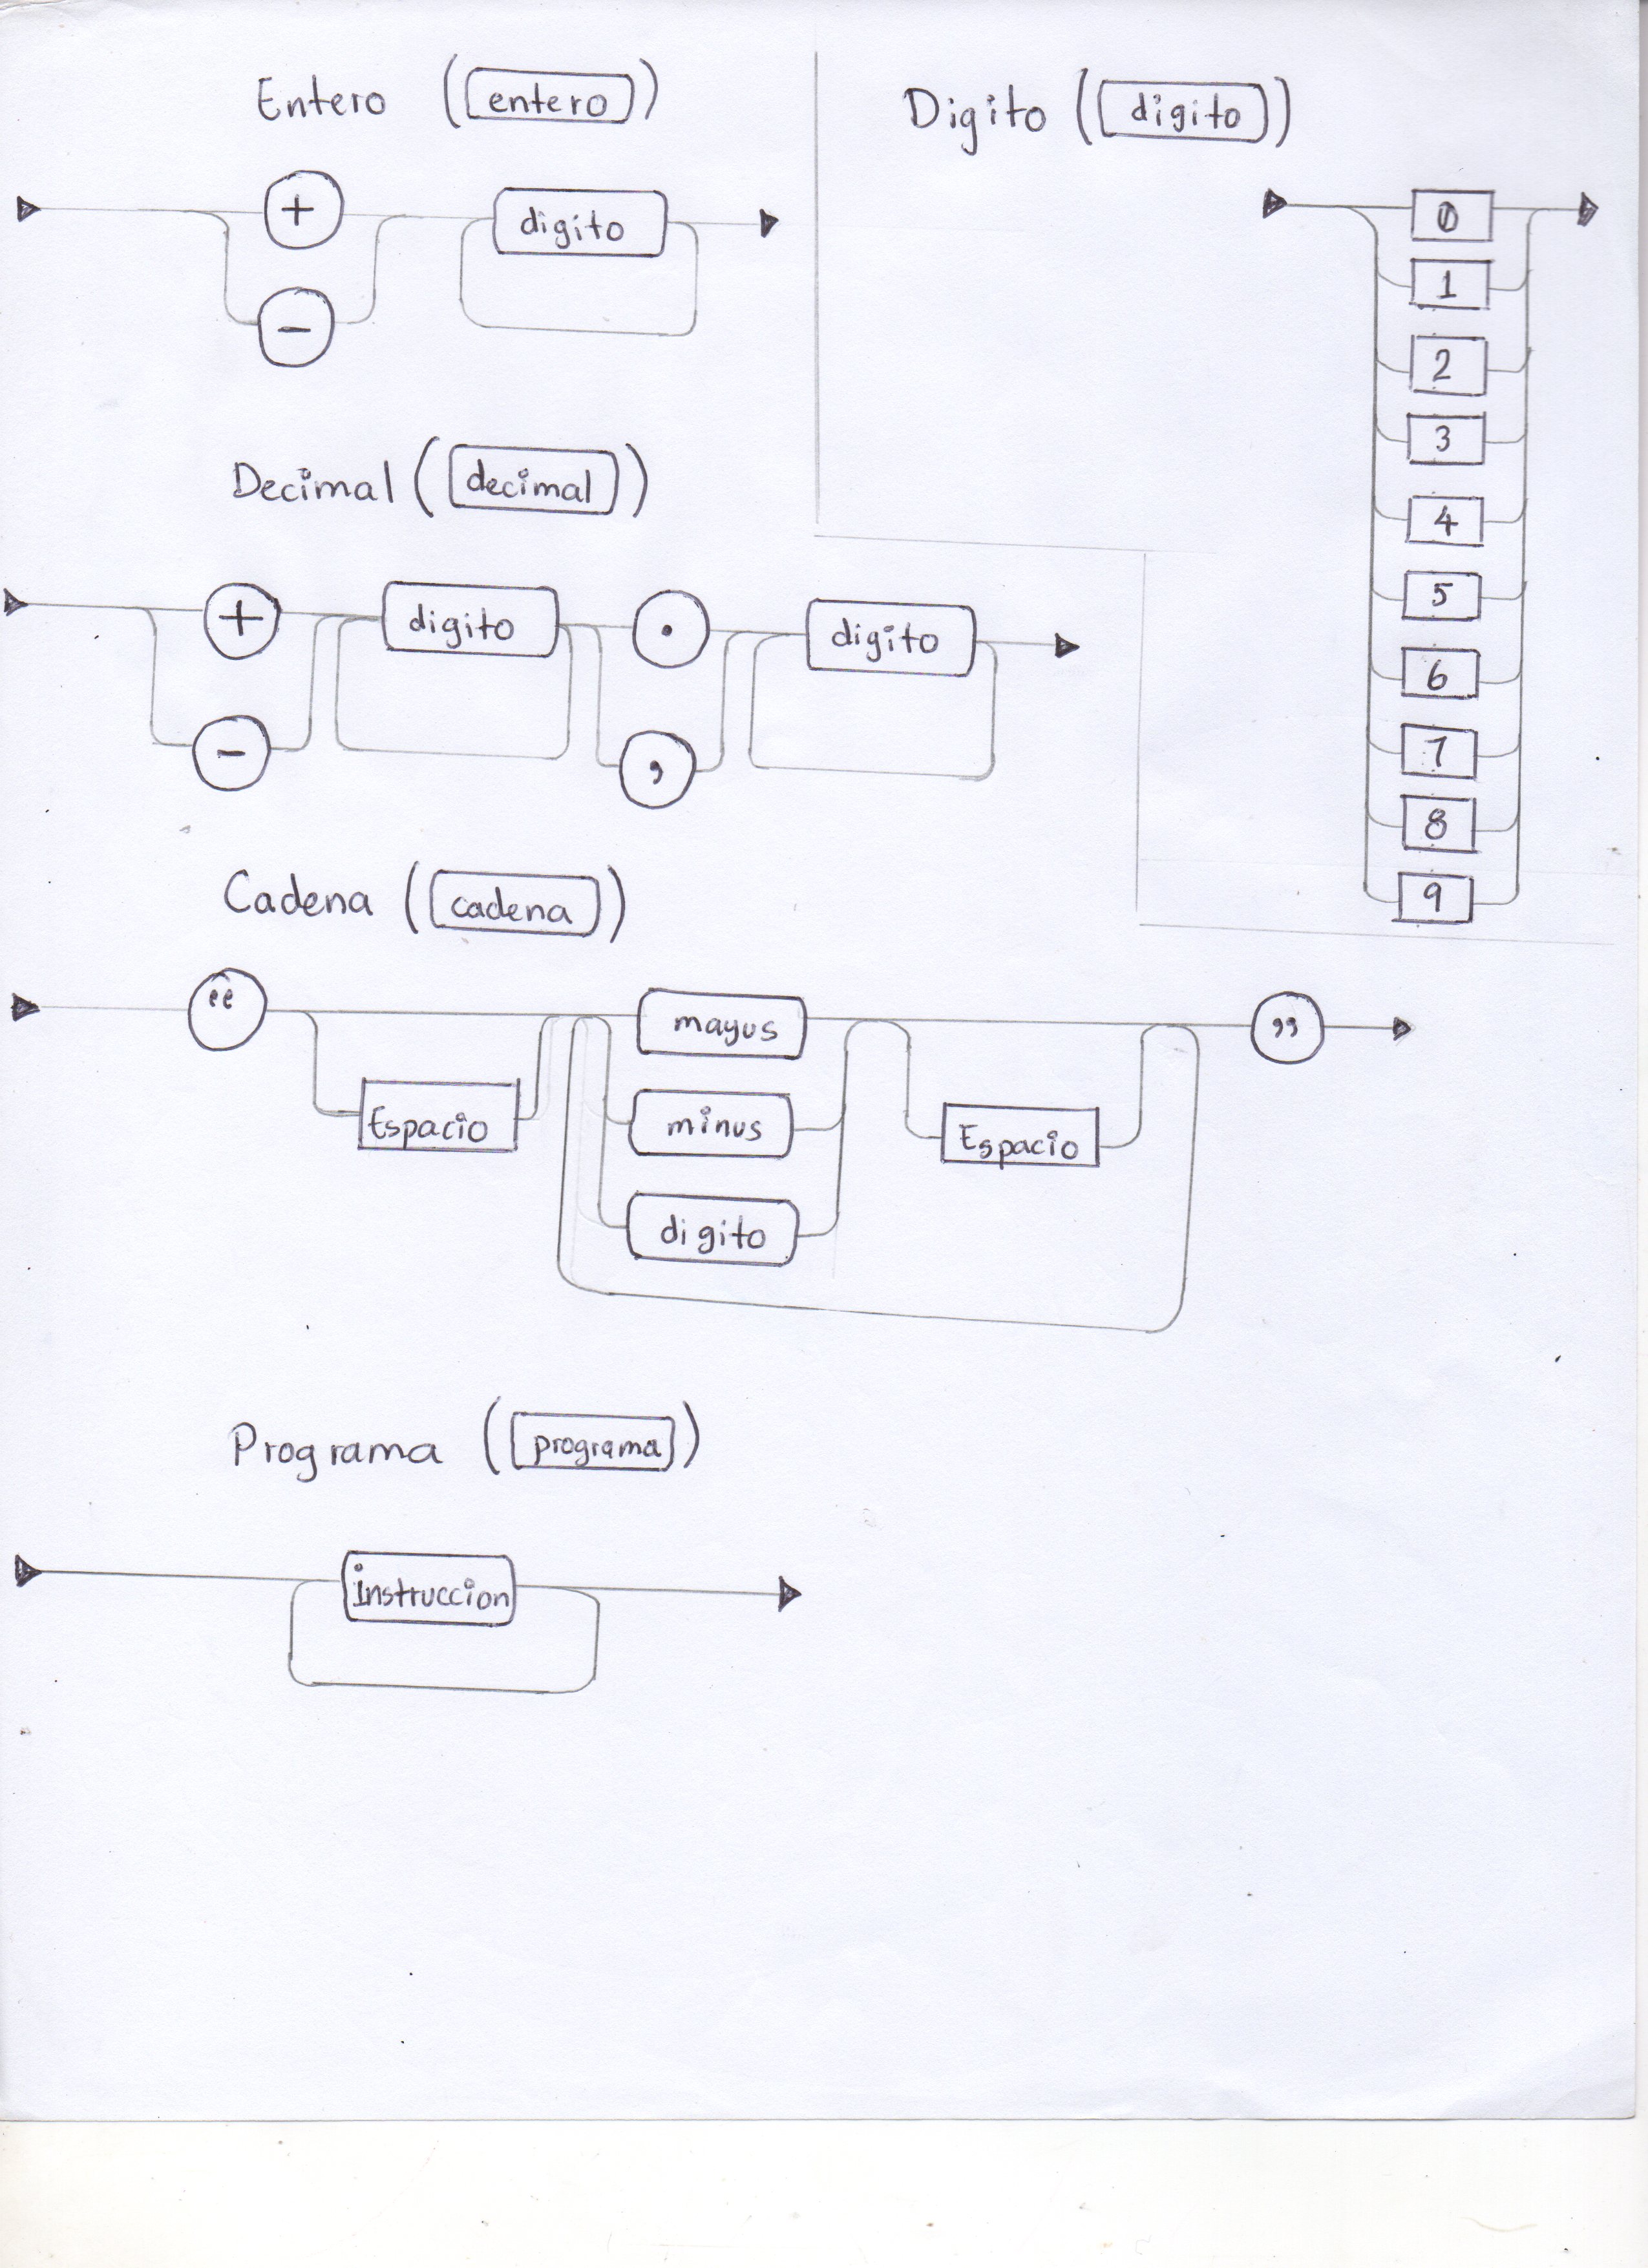 Entero (entero)
+
digito
-
Digito (digito)
0
1
2
3
4
5
6
7
8
9
Decimal (decimal)
+
digito
.
digito
-
,
Cadena (cadena)
“
mayus
”
Espacio
minus
Espacio
digito
Programa (programa)
instruccion